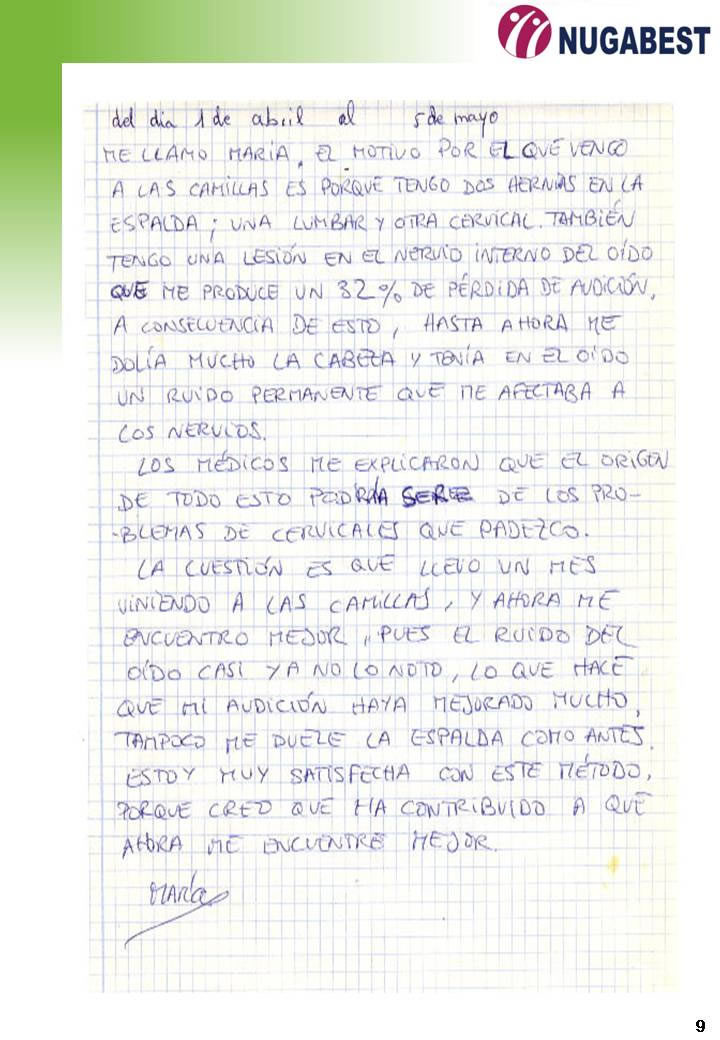 NUGABEST
del dia 1 de abril al 5 de mayo
ME LLAMO MARIA, EL MOTIVO POR EL QUE VENGO
A LAS CAMILLAS ES PORQUE TENGO DOS HERNIAS EN LA
ESPALDA; UNA LUMBAR Y OTRA CERVICAL. TAMBIÉN
TENGO UNA LESIÓN EN EL NERVIO INTERNO DEL OÍDO
QUE ME PRODUCE UN 32% DE PÉRDIDA DE AUDICIÓN,
A CONSECUENCIA DE ESTO, HASTA AHORA ME
DOLÍA MUCHO LA CABEZA Y TENÍA EN EL OÍDO
UN RUIDO PERMANENTE QUE ME AFECTABA A
LOS NERVIOS.
LOS MÉDICOS ME EXPLICARON QUE EL ORIGEN
DE TODO ESTO PODRÍA SER DE LOS PRO-
-BLEMAS DE CERVICALES QUE PADEZCO.
LA CUESTIÓN ES QUE LLEVO UN MES
VINIENDO A LAS CAMILLAS, Y AHORA ME
ENCUENTRO MEJOR, PUES EL RUIDO DEL
OÍDO CASI YA NO LO NOTO, LO QUE HACE
QUE MI AUDICIÓN HAYA MEJORADO MUCHO,
TAMPOCO ME DUELE LA ESPALDA COMO ANTES.
ESTOY MUY SATISFECHA CON ESTE MÉTODO,
PORQUE CREO QUE HA CONTRIBUIDO A QUE
AHORA ME ENCUENTRE MEJOR.
MARÍA
9